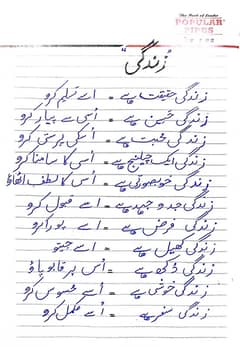 The Mark of Quality
POPULAR
PIPES
زندگی
زندگی حقیقت ہے = اسے تسلیم کرو
زندگی حسین ہے = اسی سے پیار کرو
زندگی محبت ہے = اسکی پرستش کرو
زندگی ایک چیلنج ہے = اس کا سامنا کرو
زندگی خوبصورتی ہے = اس کا لطف اٹھاؤ
زندگی جدوجہد ہے = اسے قبول کرو
زندگی فرض ہے = اسے پورا کرو
زندگی کھیل ہے = اسے جیتو
زندگی دُکھ ہے = اُس پر قابو پاؤ
زندگی خوشی ہے = اُسے محسوس کرو
زندگی سفر ہے = اُسے مکمل کرو